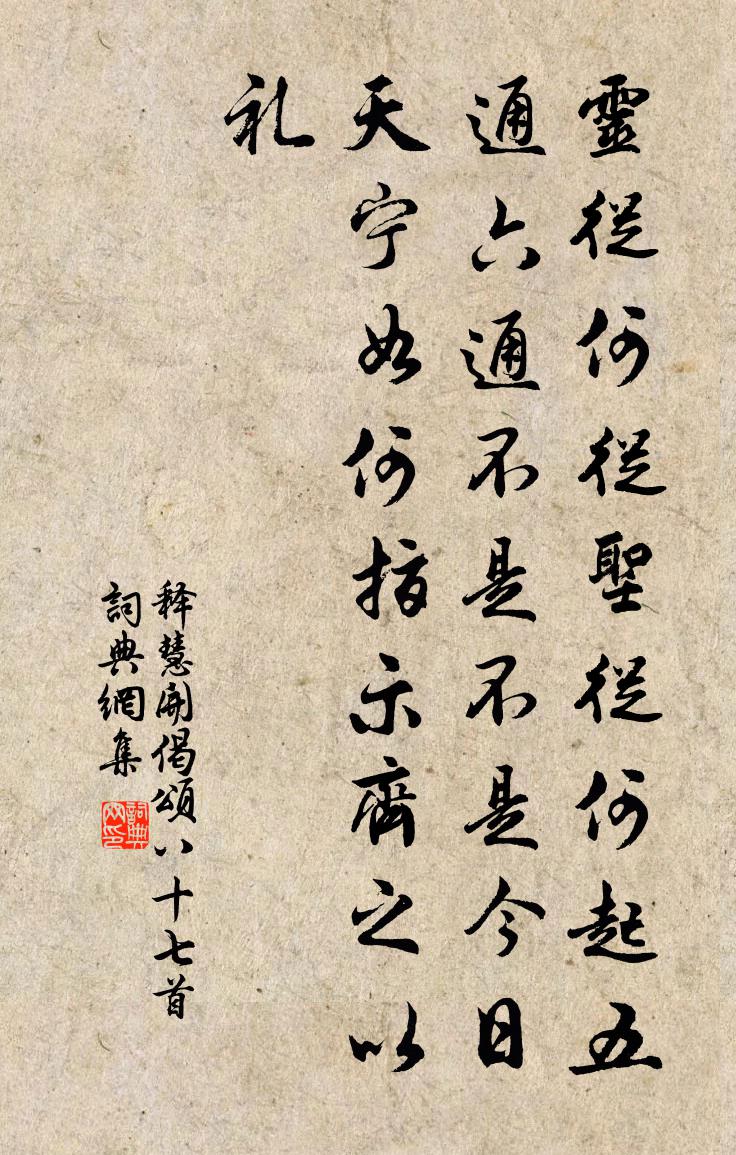 靈從何從聖從何起五
通六通不是不是今日
天宁如何指示齊之以
礼
释慧開偈頌八十七首
詞典網集
詞典網印